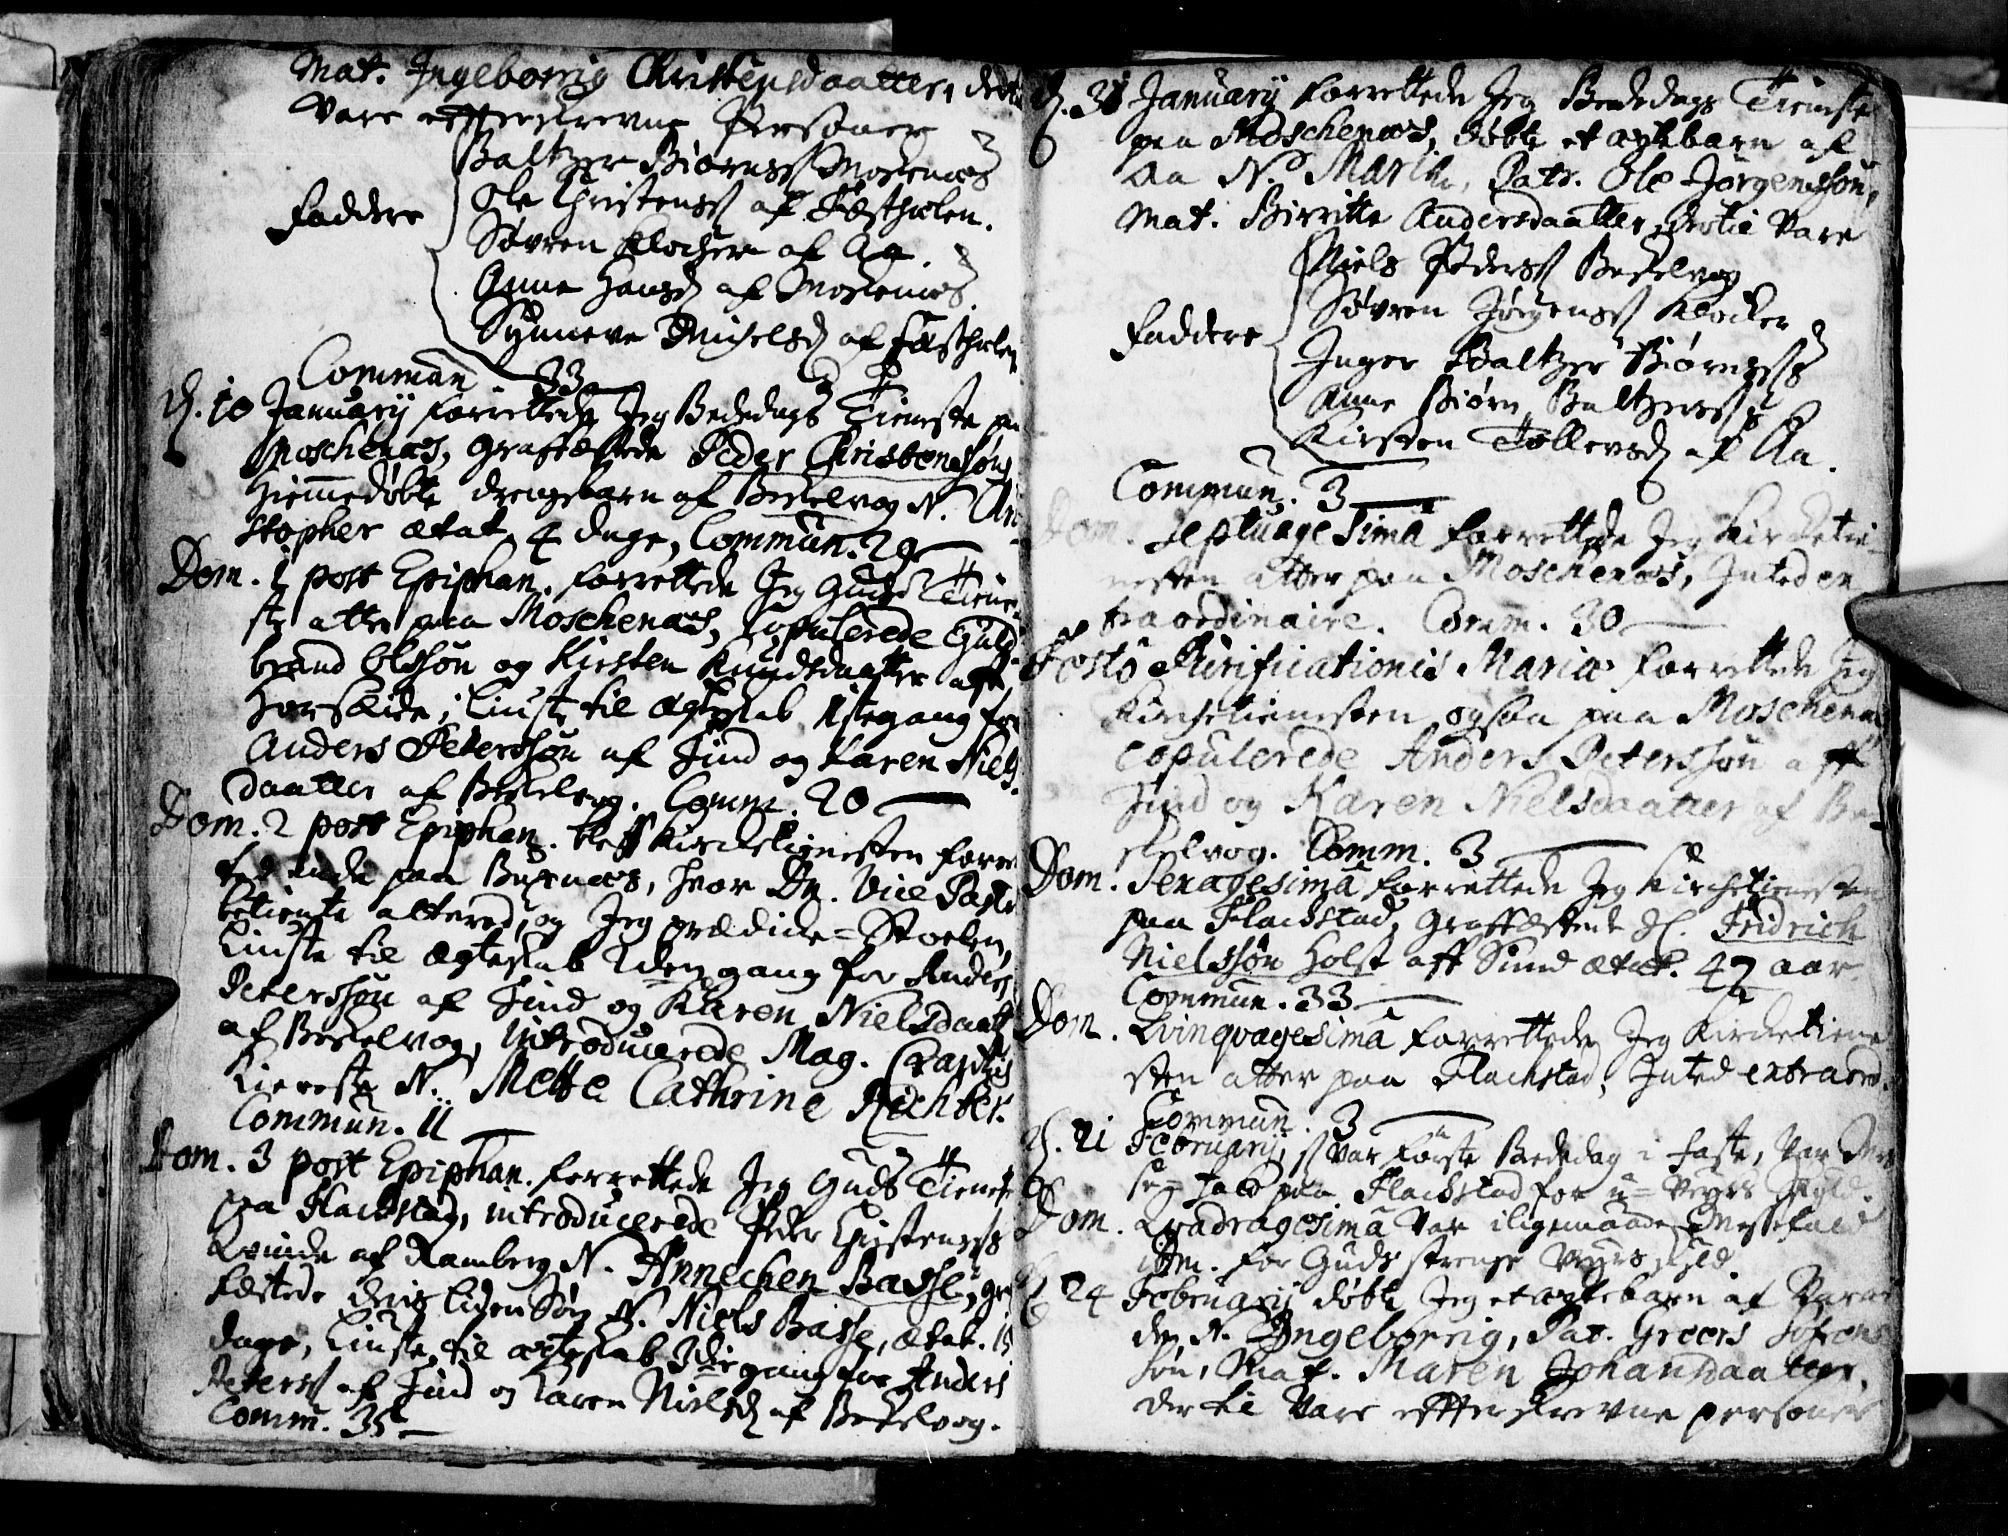 Mat. Ingeborrig Christensdaatter,
Vare effterskrevne Personer
Baltzer Biørnss. Moskenæs
Ole Christenss. af
Faddere
Søvren Klocher af Aa.
Anne Hansd. af Moskenæs.
Synneve af
Commun. 33
d. 10 January forrettede Jeg Bededags Tieneste paa
Moschenæs, grafæstede Peder Christenssøns
Hiemmedøbte drengebarn af Beskelvog N. Chri-
stopher ætat. 4 dage, Commun. 29
Dom. 1 post Epiphan. forrettede Jeg Guds Tiene-
ste atter paa Moschenæs, Copulerede Guld-
brand Olssøn og Kirsten Knudsdaatter
liuste til Ægteskab 1ste gang for
Anders Peterssøn af Sund og Karen Niels-
daatter af Beskelvog. Comm. 20
Dom. 2 post Epiphan. bleff Kirchetienesten forret-
ted inde paa Buxnæs, hvor Dn. Vice Pastor
betiente altered, og Jeg prædicke-Stoelen,
Liuste til Ægteskab 2den gang for Anders
Peterssøn af Sund og Karen Nielsdaatt.
af Beskelvog, introducerede Mag.
Kiereste N. Mette Cathrine Richter.
Commun. 11
Dom. 3 post Epiphan. forrettede Jeg Guds Tieneste
paa Flackstad, introducerede Peder Christenss.
Qvinde af Ramberg N. Annechen Basse,
fæstede deris liden Søn N. Niels Basse, ætat. 15
dage, Liuste til ægteskab 3die gang for Anders
Peterss. af Sund og Karen Nielsd. af Beskelvog.
Comm. 35
d. 31 January forrettede Jeg Bededags Tieneste
paa Moschenæs, døbte et ægtebarn af
Aa N. Martha, Patr. Ole Jørgenssøn,
Mat. Birritte Andersdaatter, dertil Vare
Niels Pederss. Beskelvog
Søvren Jørgenss. Klocker
Faddere
Inger Baltzer Biørnss.
Anne Biørn Baltzerss.
Kirsten Tollevsd. af Aa.
Commun. 3
Dom. Septuagesima forrettede Jeg Kircketie-
nesten atter paa Moschenæs, Inted ex-
traordinaire. Comm. 30
Festo Purificationis Mariæ forrettede Jeg
Kirchetienesten ogsaa paa Moschenæs
copulerede Anders Peterssøn aff
Sund og Karen Nielsdaatter af Be-
skelvog. Comm. 3
Dom. Sexagesima forrettede Jeg Kirchetienesten
paa Flackstad, graffæstede Fridrich
Nielssøn Holst aff Sund ætat. 42 aar
Commun. 33
Dom. Qvinqvagesima forrettede Jeg Kircketiene
sten atter paa Flackstad, Inted extraord.
Commun. 3
d. 21 February, Var første Bededag i faste, Var Mes
se-fald paa Flackstad for u-Veyrs skyld.
Dom. Qvadragesima Var iligemaade Messefald
for Guds strenge Veyrs skyld
d. 24 February døbte Jeg et ægtebarn af
den N. Ingeborrig, Pat. Greers
søn, Mat. Maren Johansdaatter,
dertil Vare effterskrevne personer